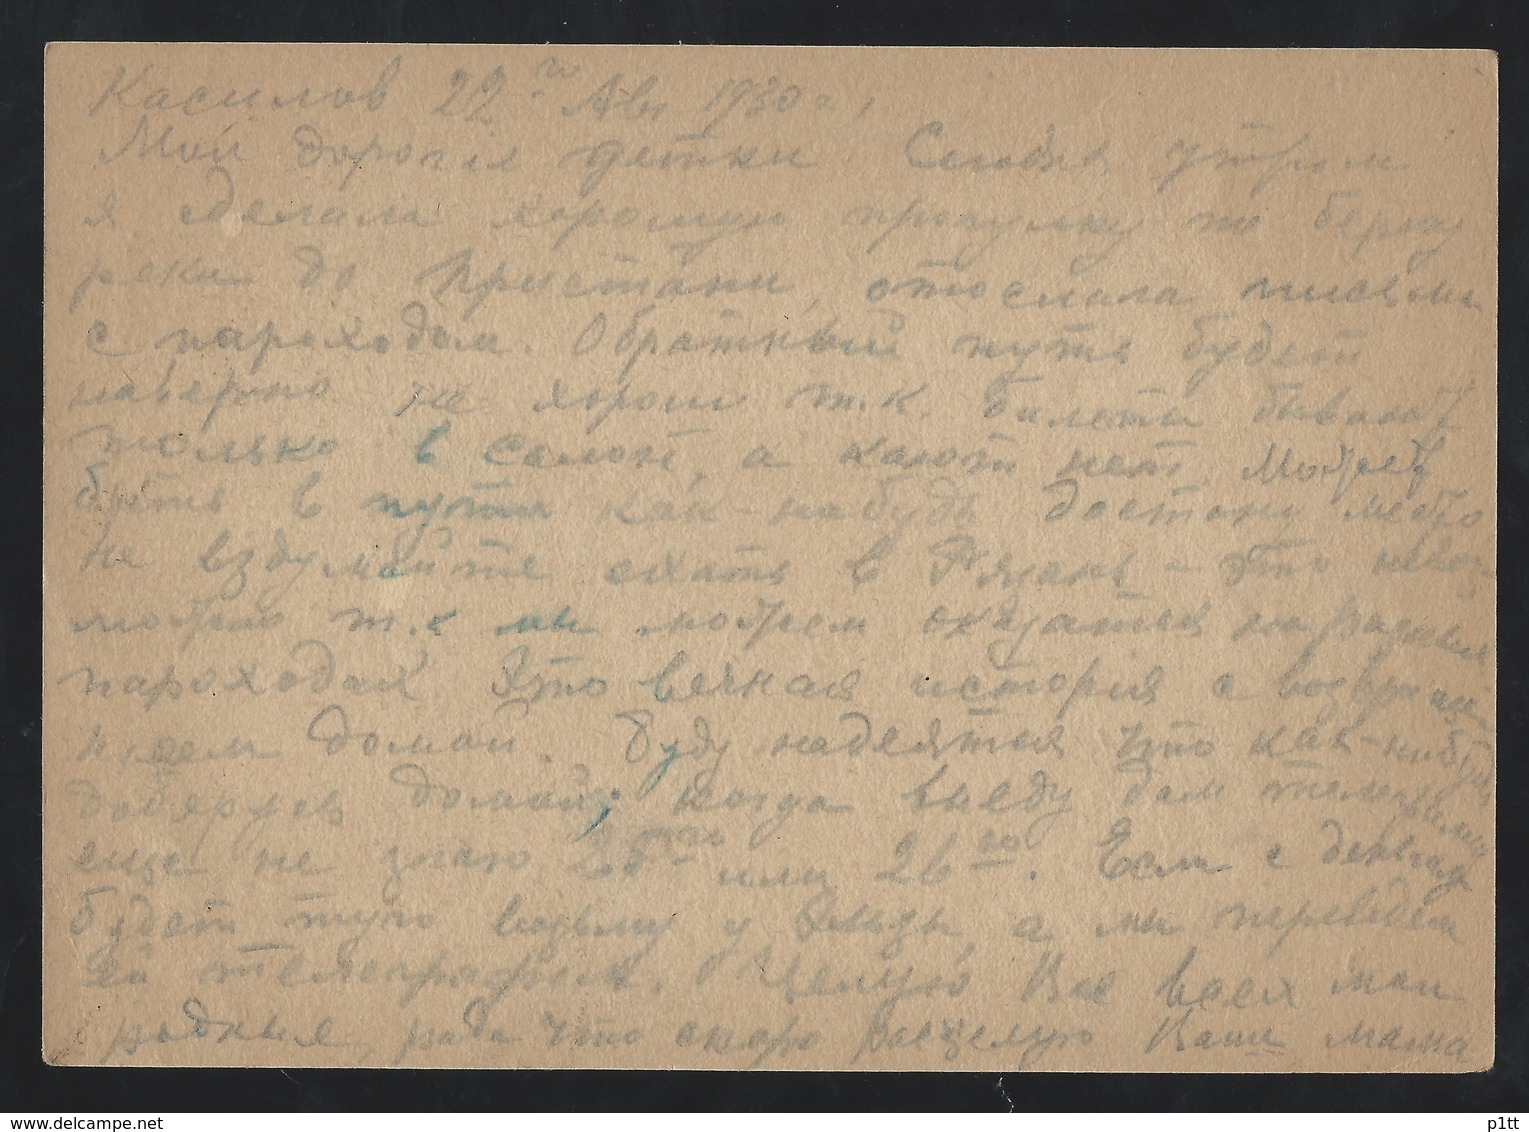 Касимов 22го Авг 1930 г,
Мои дорогие детки Сегодня утром
я сделала хорошую прогулку по берегу
реки до пристани, отослала письма
с пароходом. Обратный путь будет
наверно не хорош т.к. билеты бывают
только в салон, а кают нет. Может
быть в пути как-нибудь достану место
Не вздумайте ехать в Рязань - это невоз-
можно т.к мы можем оказаться на разных
пароходах Это вечная история с возвраще-
нием домой. Буду надеяться что как-нибудь
доберусь домой; когда выеду дам телеграмму
еще не знаю 25го или 26го. Если с деньгами
будет туго возьму у Эльзы, а мы переведем
ей телеграфом. Целую Вас всех мои
родные, рада что скоро расцелую Ваша мама
www.delcampe.net
p1tt